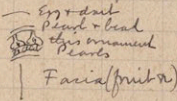 Egg & dart
Pearl & bead
this ornament
Pearls
Facia (fruit &c)